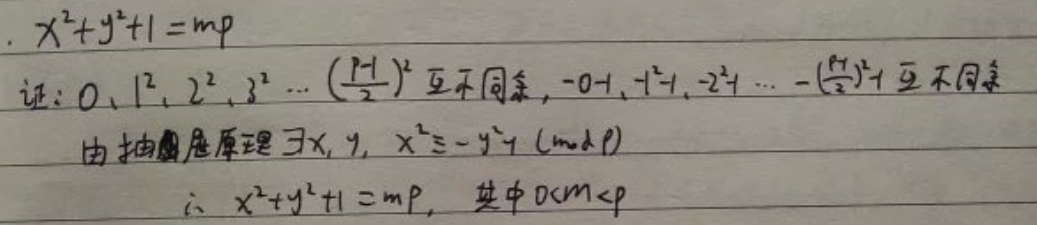 . x²+y²+1=mp
证: 0、1²、2²、3² ... (\frac{p-1}{2})² 互不同余, -0-1、-1²-1、-2²-1 ... -(\frac{p-1}{2})²-1 互不同余
由抽屉原理 ∃x, y, x²≡-y²-1 (mod p)
∴ x²+y²+1=mp, 其中 0<m<p